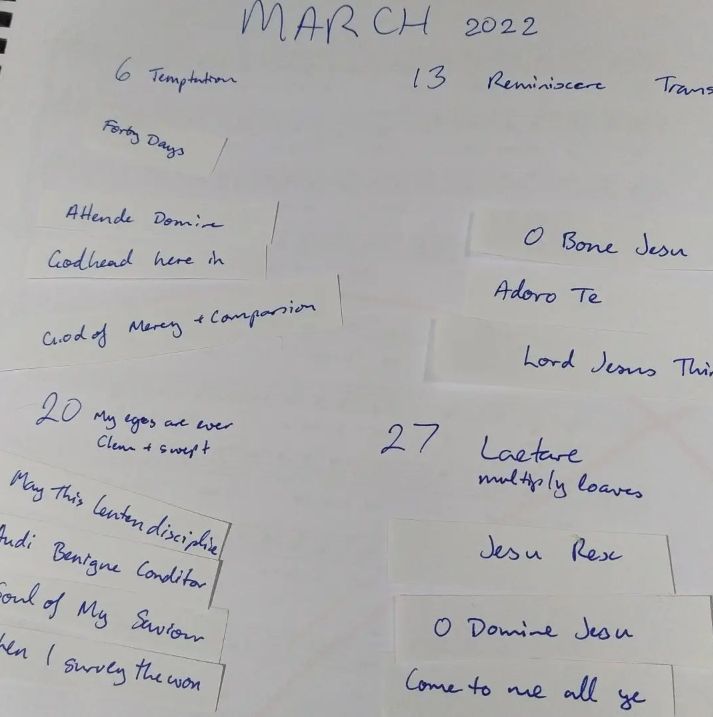 MARCH 2022
6 Temptation
Forty Days
Attende Domine
Godhead here in
God of Mercy + Compassion
13 Reminiscere Trans
O Bone Jesu
Adoro Te
Lord Jesus Thi
20 My eyes are ever
Clean + swept
May This Lenten discipline
Audi Benigne Conditor
Soul of My Saviour
hen I survey the won
27 Laetare
multiply loaves
Jesu Rex
O Domine Jesu
Come to me all ye